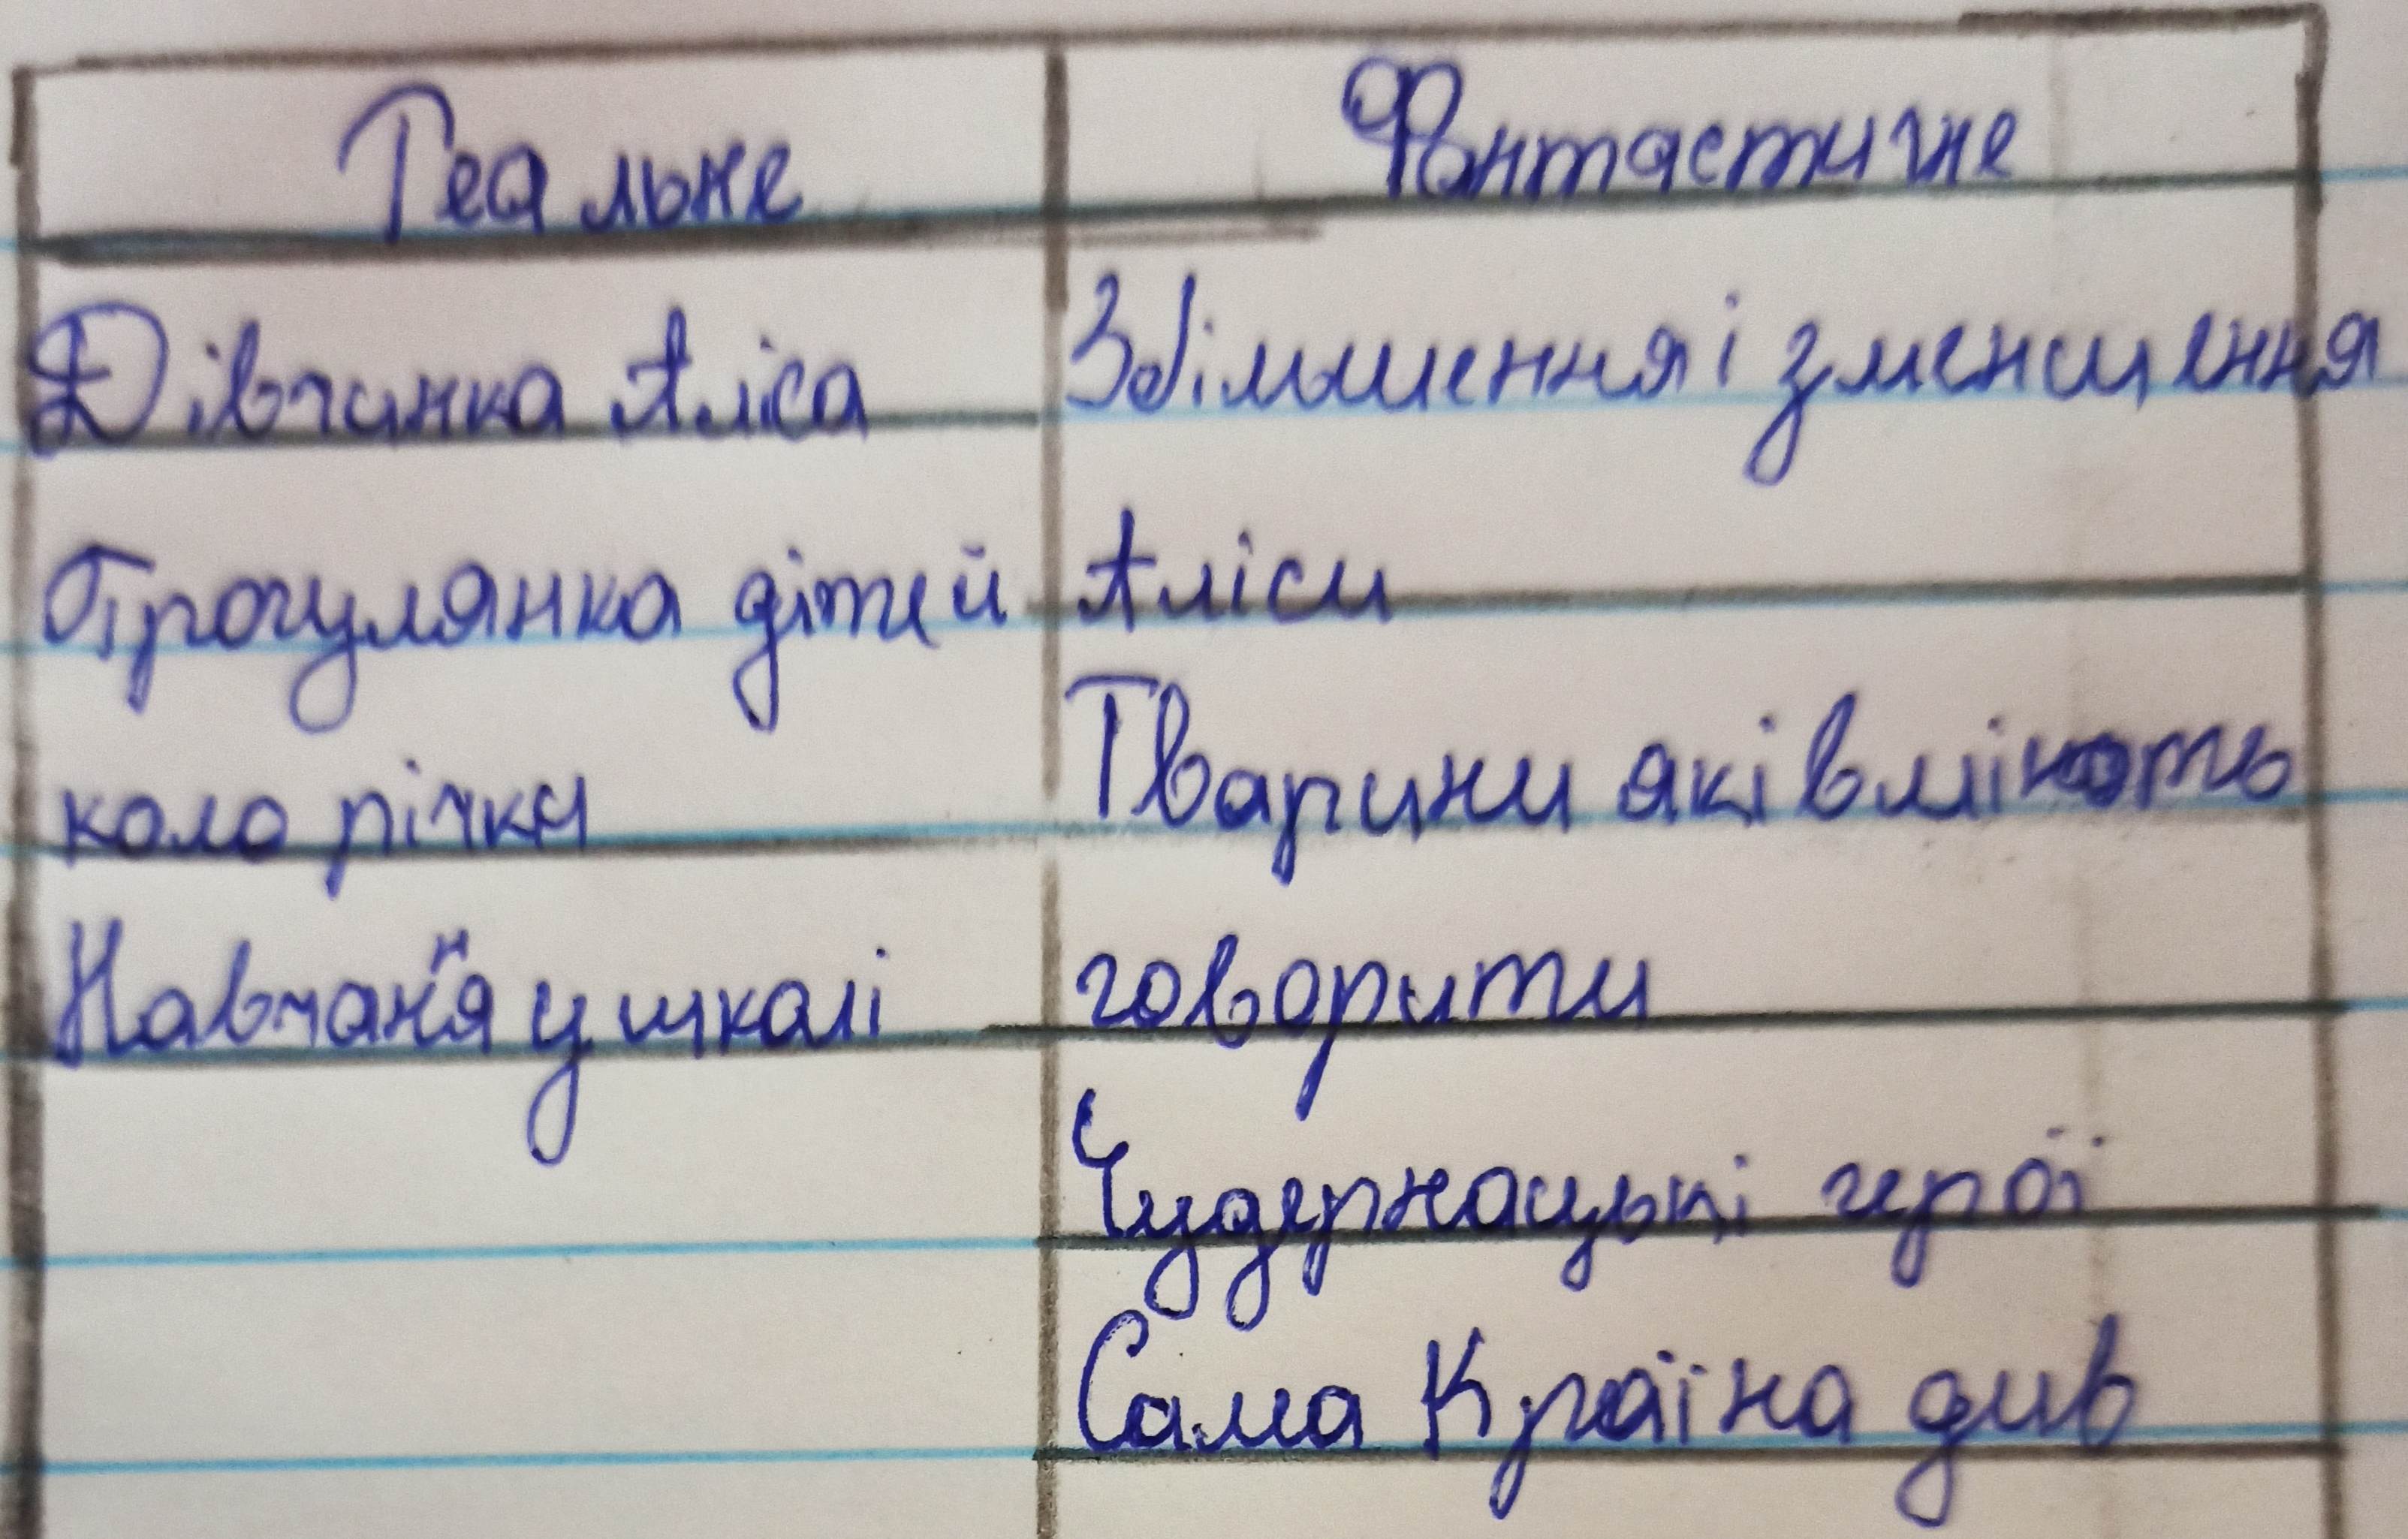 Реальне
Фантастичне
Дівчинка Аліса
Прогулянка дітей
коло річки
Навчання у школі
Збільшення і зменшення
Аліси
Тварини які вміють
говорити
Чудернацькі герої
Сама Країна див